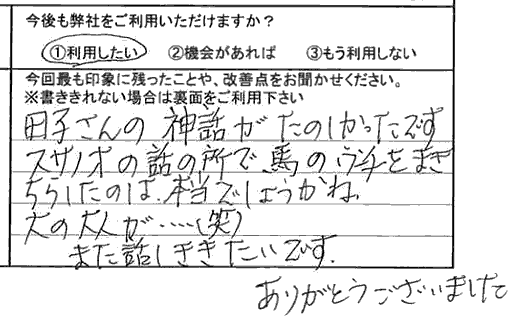 今後も弊社をご利用いただけますか？
①利用したい ②機会があれば ③もう利用しない
今回最も印象に残ったことや、改善点をお聞かせください。
※書ききれない場合は裏面をご利用下さい
田子さんの神話がたのしかったです
スサノオの話の所で、馬のウンチをまき
ちらしたのは、本当でしょうかね。
大の大人が……(笑)
また話しききたいです。
ありがとうございました